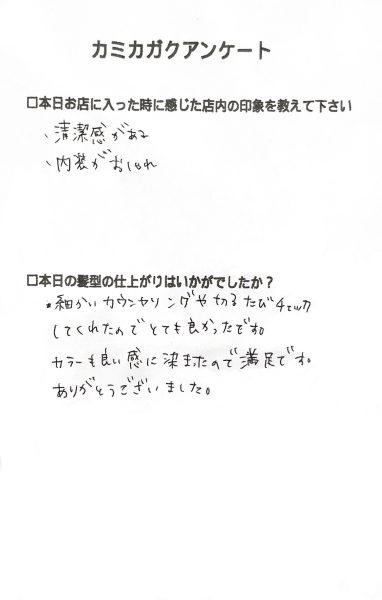 カミカガクアンケート
□本日お店に入った時に感じた店内の印象を教えて下さい
、清潔感がある
、内装がおしゃれ
□本日の髪型の仕上がりはいかがでしたか？
・細かいカウンセリングや切るたびチェック
してくれたのでとても良かったです。
カラーも良い感に染まったので満足です。
ありがとうございました。